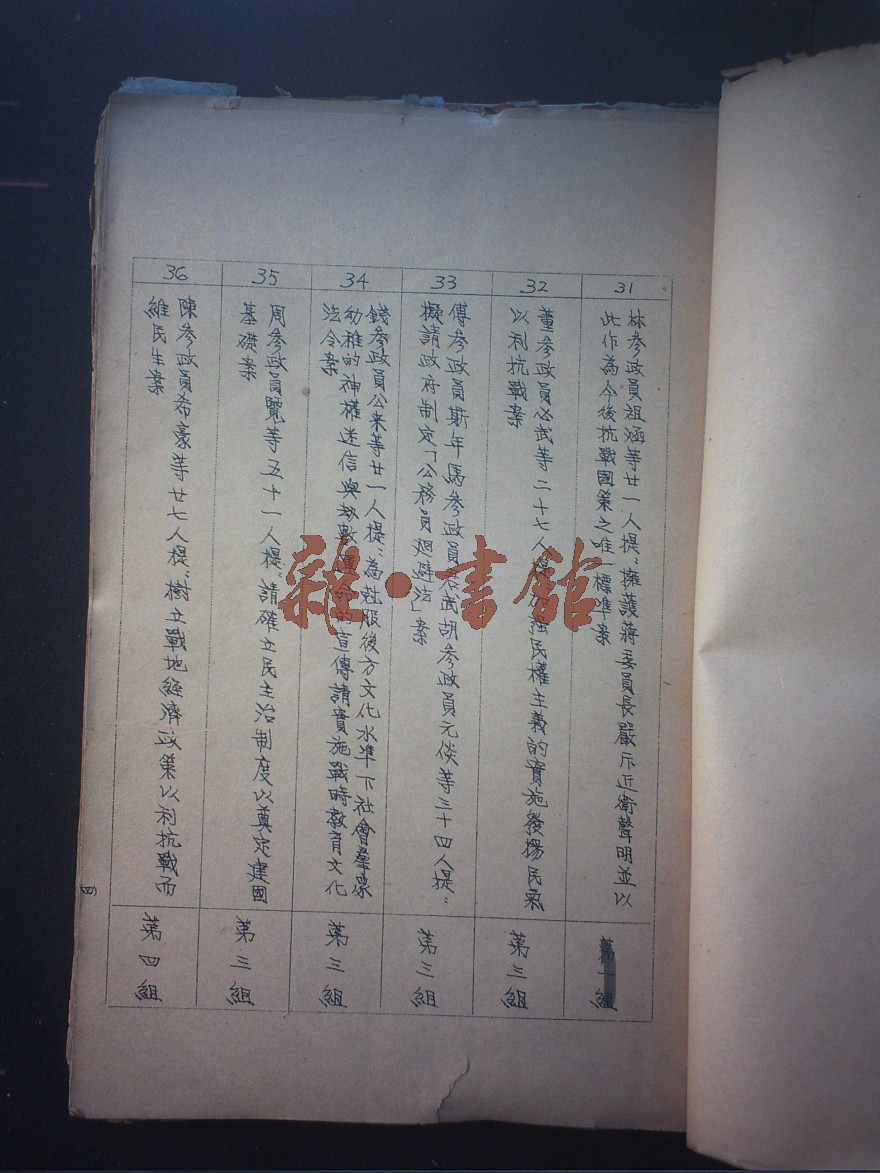 31
林參政員祖涵等廿一人提:擁護蔣委員長嚴斥近衛聲明並以
此作為今後抗戰國策之唯一標準案
第一組
32
董參政員必武等二十七人提:加強民權主義的實施發揚民氣
以利抗戰案
第三組
33
傅參政員斯年馬參政員 武胡參政員元倓等三十四人提:
擬請政府制定「公務員廻避法」案
第三組
34
錢參政員公來等廿一人提:為尅服後方文化水準下社會羣眾
幼稚的神權迷信與劫數運命的宣傳請實施戰時教育文化
法令案
第三組
35
周參政員覽等五十一人提:請確立民主治制度以奠定建國
基礎案
第三組
36
陳參政員希豪等廿七人提:樹立戰地經濟政策以利抗戰而
維民生案
第四組
四
雜·書館